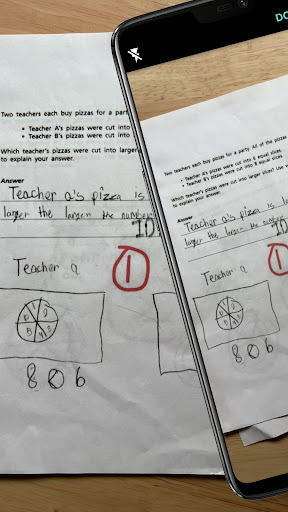 Two teachers each buy pizzas for a party
• Teacher A's pizzas were cut into
• Teacher B's pizzas were cut into
Which teacher's pizzas were cut into larger
to explain your answer.
Answer
Teacher a's pizza is
larger the larger the number
1
Teacher a
8 0 6
DO
Two teachers each buy pizzas for a party. All of the pizzas
• Teacher A's pizzas were cut into 6 equal slices.
• Teacher B's pizzas were cut into 8 equal slices.
Which teacher's pizzas were cut into larger slices? Use
to explain your answer.
Answer
Teacher a's pizza is
larger the larger the number
1
Teacher a
8 0 6